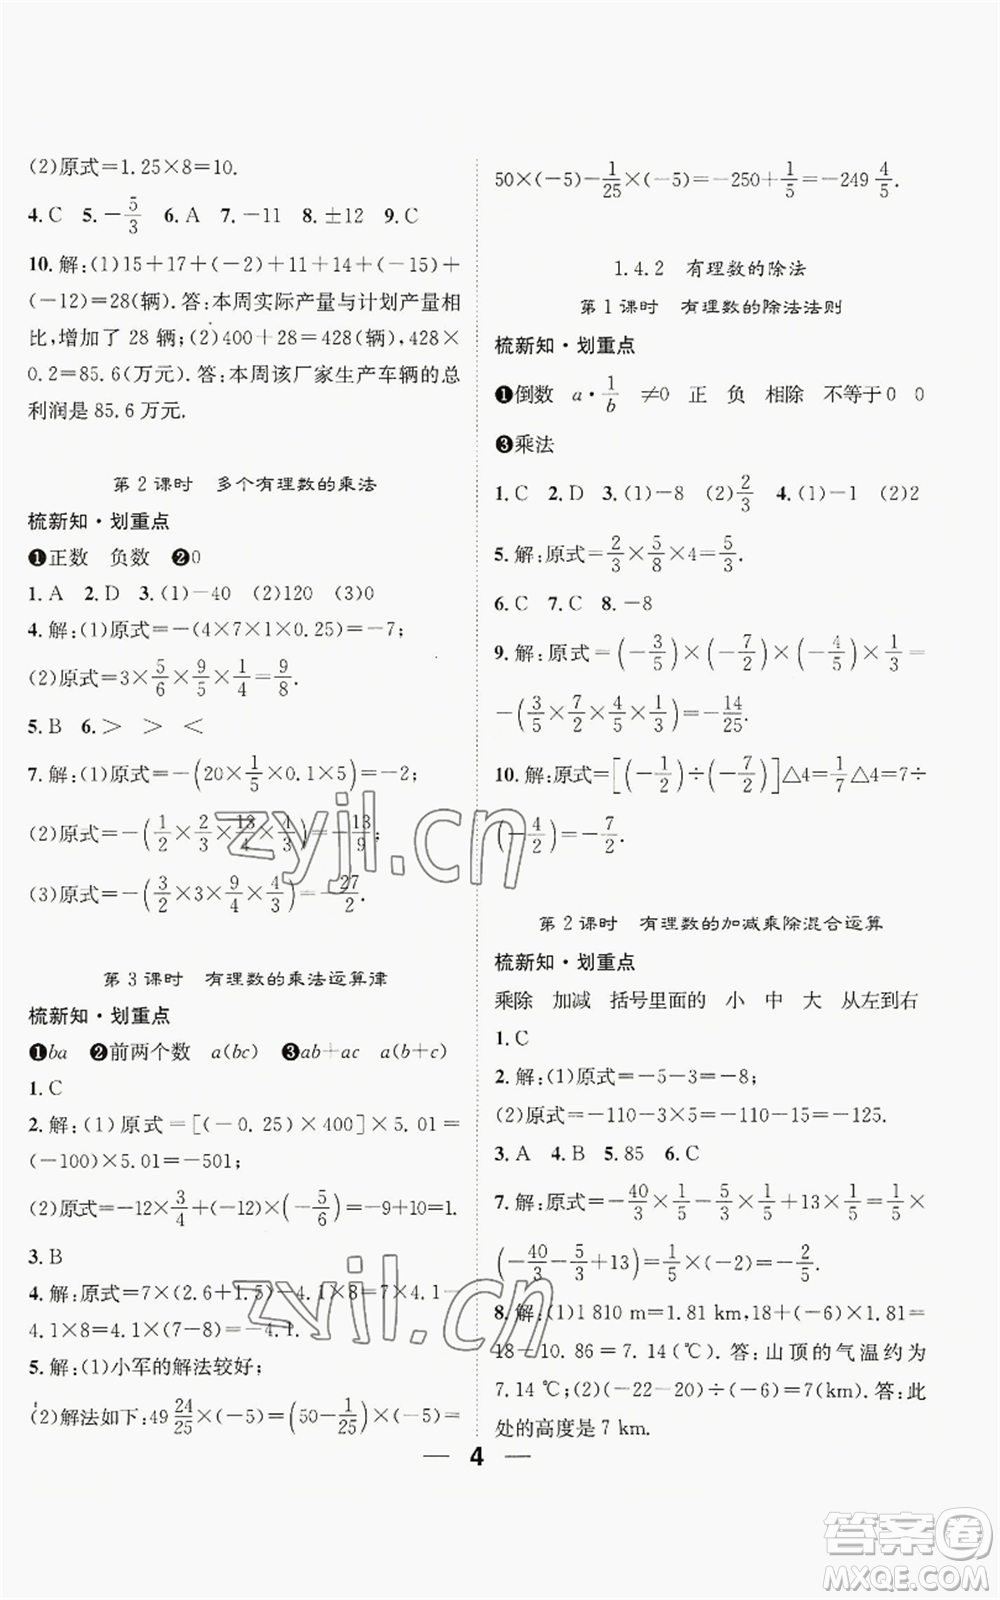 (2)原式=1.25×8=10.
4. C 5. -5/3 6. A 7. -11 8. ±12 9. C
10. 解:(1)15+17+(-2)+11+14+(-15)+
(-12)=28(辆). 答:本周实际产量与计划产量相
比,增加了 28 辆;(2)400+28=428(辆),428×
0.2=85.6(万元). 答:本周该厂家生产车辆的总
利润是 85.6 万元.
第 2 课时 多个有理数的乘法
梳新知·划重点
❶正数 负数 ❷0
1. A 2. D 3. (1)-40 (2)120 (3)0
4. 解:(1)原式=-(4×7×1×0.25)=-7;
(2)原式=3×5/6×9/5×1/4=9/8.
5. B 6. > > <
7. 解:(1)原式=-(20×1/5×0.1×5)=-2;
(2)原式=-(1/2×2/3×13/4×4/3)=-13/9;
(3)原式=-(3/2×3×9/4×4/3)=-27/2.
第 3 课时 有理数的乘法运算律
梳新知·划重点
❶ba ❷前两个数 a(bc) ❸ab+ac a(b+c)
1. C
2. 解:(1)原式=[(-0.25)×400]×5.01=
(-100)×5.01=-501;
(2)原式=-12×3/4+(-12)×(-5/6)=-9+10=1.
3. B
4. 解:原式=7×(2.6+1.5)-4.1×8=7×4.1-
4.1×8=4.1×(7-8)=-4.1.
5. 解:(1)小军的解法较好;
(2)解法如下:49 24/25×(-5)=(50-1/25)×(-5)=
50×(-5)-1/25×(-5)=-250+1/5=-249 4/5.
1.4.2 有理数的除法
第 1 课时 有理数的除法法则
梳新知·划重点
❶倒数 a·1/b ≠0 正 负 相除 不等于0 0
❸乘法
1. C 2. D 3. (1)-8 (2)2/3 4. (1)-1 (2)2
5. 解:原式=2/3×5/8×4=5/3.
6. C 7. C 8. -8
9. 解:原式=(-3/5)×(-7/2)×(-4/5)×1/3=
-(3/5×7/2×4/5×1/3)=-14/25.
10. 解:原式=[(-1/2)÷(-7/2)]△4=1/7△4=7÷
(-4/2)=-7/2.
第 2 课时 有理数的加减乘除混合运算
梳新知·划重点
乘除 加减 括号里面的 小 中 大 从左到右
1. C
2. 解:(1)原式=-5-3=-8;
(2)原式=-110-3×5=-110-15=-125.
3. A 4. B 5. 85 6. C
7. 解:原式=-40/3×1/5-5/3×1/5+13×1/5=1/5×
(-40/3-5/3+13)=1/5×(-2)=-2/5.
8. 解:(1)1 810 m=1.81 km,18+(-6)×1.81=
18-10.86=7.14(℃). 答:山顶的气温约为
7.14 ℃;(2)(-22-20)÷(-6)=7(km). 答:此
处的高度是 7 km.
— 4 —
zyjl.cn
zyjl.cn
答案圈
MXQE.COM